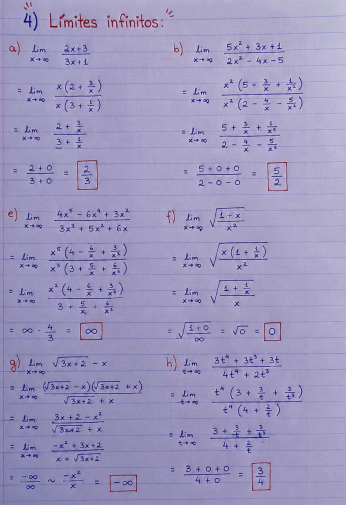 4) Límites infinitos:
a) lim x→∞ (2x+3)/(3x+1)
= lim x→∞ x(2 + 3/x)/x(3 + 1/x)
= lim x→∞ (2 + 3/x)/(3 + 1/x)
= (2+0)/(3+0) = 2/3
b) lim x→∞ (5x² + 3x + 1)/(2x² - 4x - 5)
= lim x→∞ x²(5 + 3/x + 1/x²)/x²(2 - 4/x - 5/x²)
= lim x→∞ (5 + 3/x + 1/x²)/(2 - 4/x - 5/x²)
= (5+0+0)/(2-0-0) = 5/2
e) lim x→∞ (4x⁵ - 6x⁴ + 3x²)/(3x³ + 5x² + 6x)
= lim x→∞ x⁵(4 - 6/x + 3/x³)/x³(3 + 5/x + 6/x²)
= lim x→∞ x²(4 - 6/x + 3/x³)/(3 + 5/x + 6/x²)
= ∞ · 4/3 = ∞
f) lim x→∞ √((1+x)/x²)
= lim x→∞ √(x(1 + 1/x)/x²)
= lim x→∞ √((1 + 1/x)/x)
= √((1+0)/∞) = √0 = 0
g) lim x→∞ √(3x+2) - x
= lim x→∞ (√(3x+2) - x)(√(3x+2) + x)/(√(3x+2) + x)
= lim x→∞ (3x+2 - x²)/(√(3x+2) + x)
= lim x→∞ (-x² + 3x + 2)/(x + √(3x+2))
= -∞/∞ ~ -x²/x = -∞
h) lim t→∞ (3t⁴ + 3t³ + 3t)/(4t⁴ + 2t³)
= lim t→∞ t⁴(3 + 3/t + 3/t³)/t⁴(4 + 2/t)
= lim t→∞ (3 + 3/t + 3/t³)/(4 + 2/t)
= (3+0+0)/(4+0) = 3/4